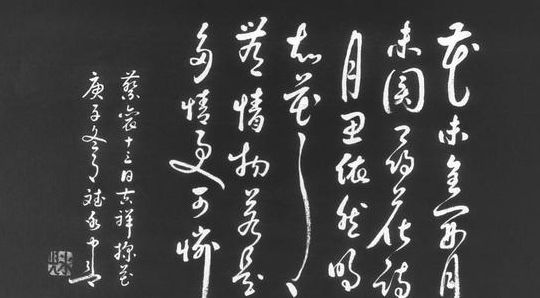 花未全开月
未圆寻花待
月思依然明
知花月
无情物若是
多情更可怜
蔡襄十三日吉祥探花
庚子冬月